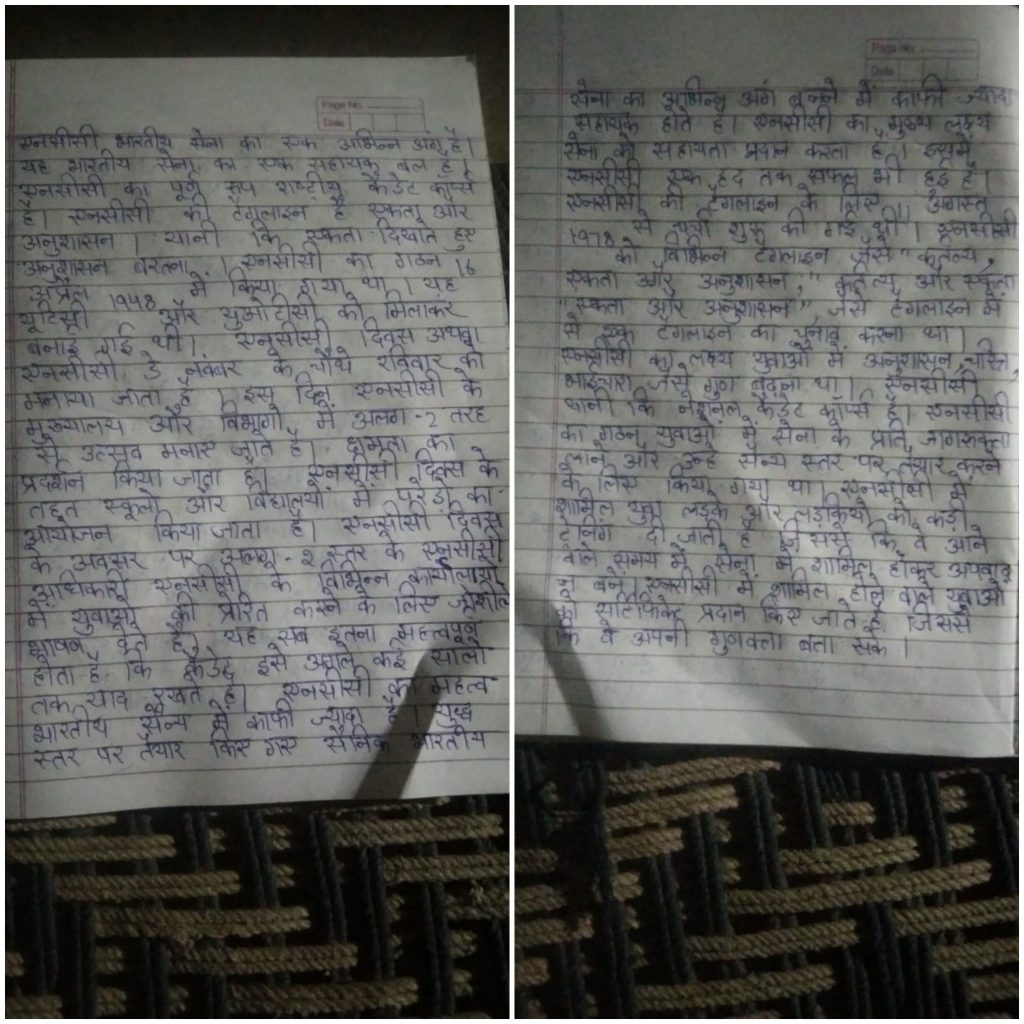 Page No.
Date
एनसीसी भारतीय सेना का एक अभिन्न अंग है।
यह भारतीय सेना का एक सहायक बल है।
एनसीसी का पूर्ण रूप राष्ट्रीय कैडेट कॉर्प्स
है। एनसीसी की टैगलाइन है एकता और
अनुशासन। यानी कि एकता दिखाते हुए
अनुशासन बरतना। एनसीसी का गठन 16
अप्रैल 1948 में किया गया था। यह
और युओटीसी को मिलाकर
बनाई गई थी। एनसीसी दिवस अथवा
एनसीसी डे नवंबर के चौथे रविवार को
मनाया जाता है। इस दिन एनसीसी के
मुख्यालय और विभागों में अलग-2 तरह
से उत्सव मनाए जाते है। क्षमता का
प्रदर्शन किया जाता है। एनसीसी दिवस के
तहत स्कूलों और विद्यालयों में परेडो का
आयोजन किया जाता है। एनसीसी दिवस
के अवसर पर अलग-२ स्तर के एनसीसी
अधिकारी एनसीसी के विभिन्न कार्यालयों
में युवाओं को प्रेरित करने के लिए जोशीले
भाषण देते है। यह सब इतना महत्वपूर्ण
होता है कि कैडेट इसे अगले कई सालों
तक याद रखते है। एनसीसी का महत्व
भारतीय सैन्य में काफी ज्यादा है। युद्ध
स्तर पर तैयार किए गए सैनिक भारतीय
Page No.
Date
सेना का अभिन्न अंग बनने में काफी ज्यादा
सहायक होते है। एनसीसी का मुख्य लक्ष्य
सेना को सहायता प्रदान करता है। इसमें
एनसीसी एक हद तक सफल भी हुई है।
एनसीसी की टैगलाइन के लिए 11 अगस्त
1978 से चर्चा शुरु की गई थी। एनसीसी
को विभिन्न टैगलाइन जैसे "कर्तव्य,
एकता और अनुशासन," कर्तव्य और एकता
"एकता और अनुशासन" जैसे टैगलाइन में
से एक टैगलाइन का चुनाव करना था।
एनसीसी का लक्ष्य युवाओं में अनुशासन, चरित्र,
भाईचारा जैसे गुण बढ़ाना था। एनसीसी
यानी कि नेशनल कैडेट कॉर्प्स है। एनसीसी
का गठन युवाओं में सेना के प्रति जागरुकता
लाने और उन्हें सैन्य स्तर पर तैयार करने
के लिए किया गया था। एनसीसी में
शामिल युवा लड़के और लड़कियों को कड़ी
ट्रेनिंग दी जाती है जिससे कि वे आने
वाले समय में सेना में शामिल होकर अपवाद
न बने। एनसीसी में शामिल होने वाले युवाओं
को सर्टिफिकेट प्रदान किए जाते है जिससे
कि वे अपनी गुणवत्ता बता सके।